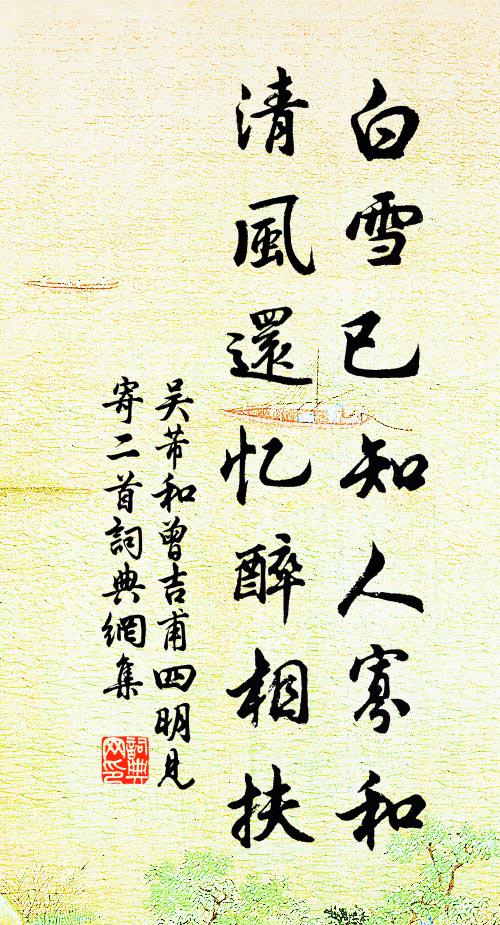 白雪已知人寡和
清風還忆醉相扶
吴芾和曾吉甫四明見
寄二首詞典網集
詞典網印